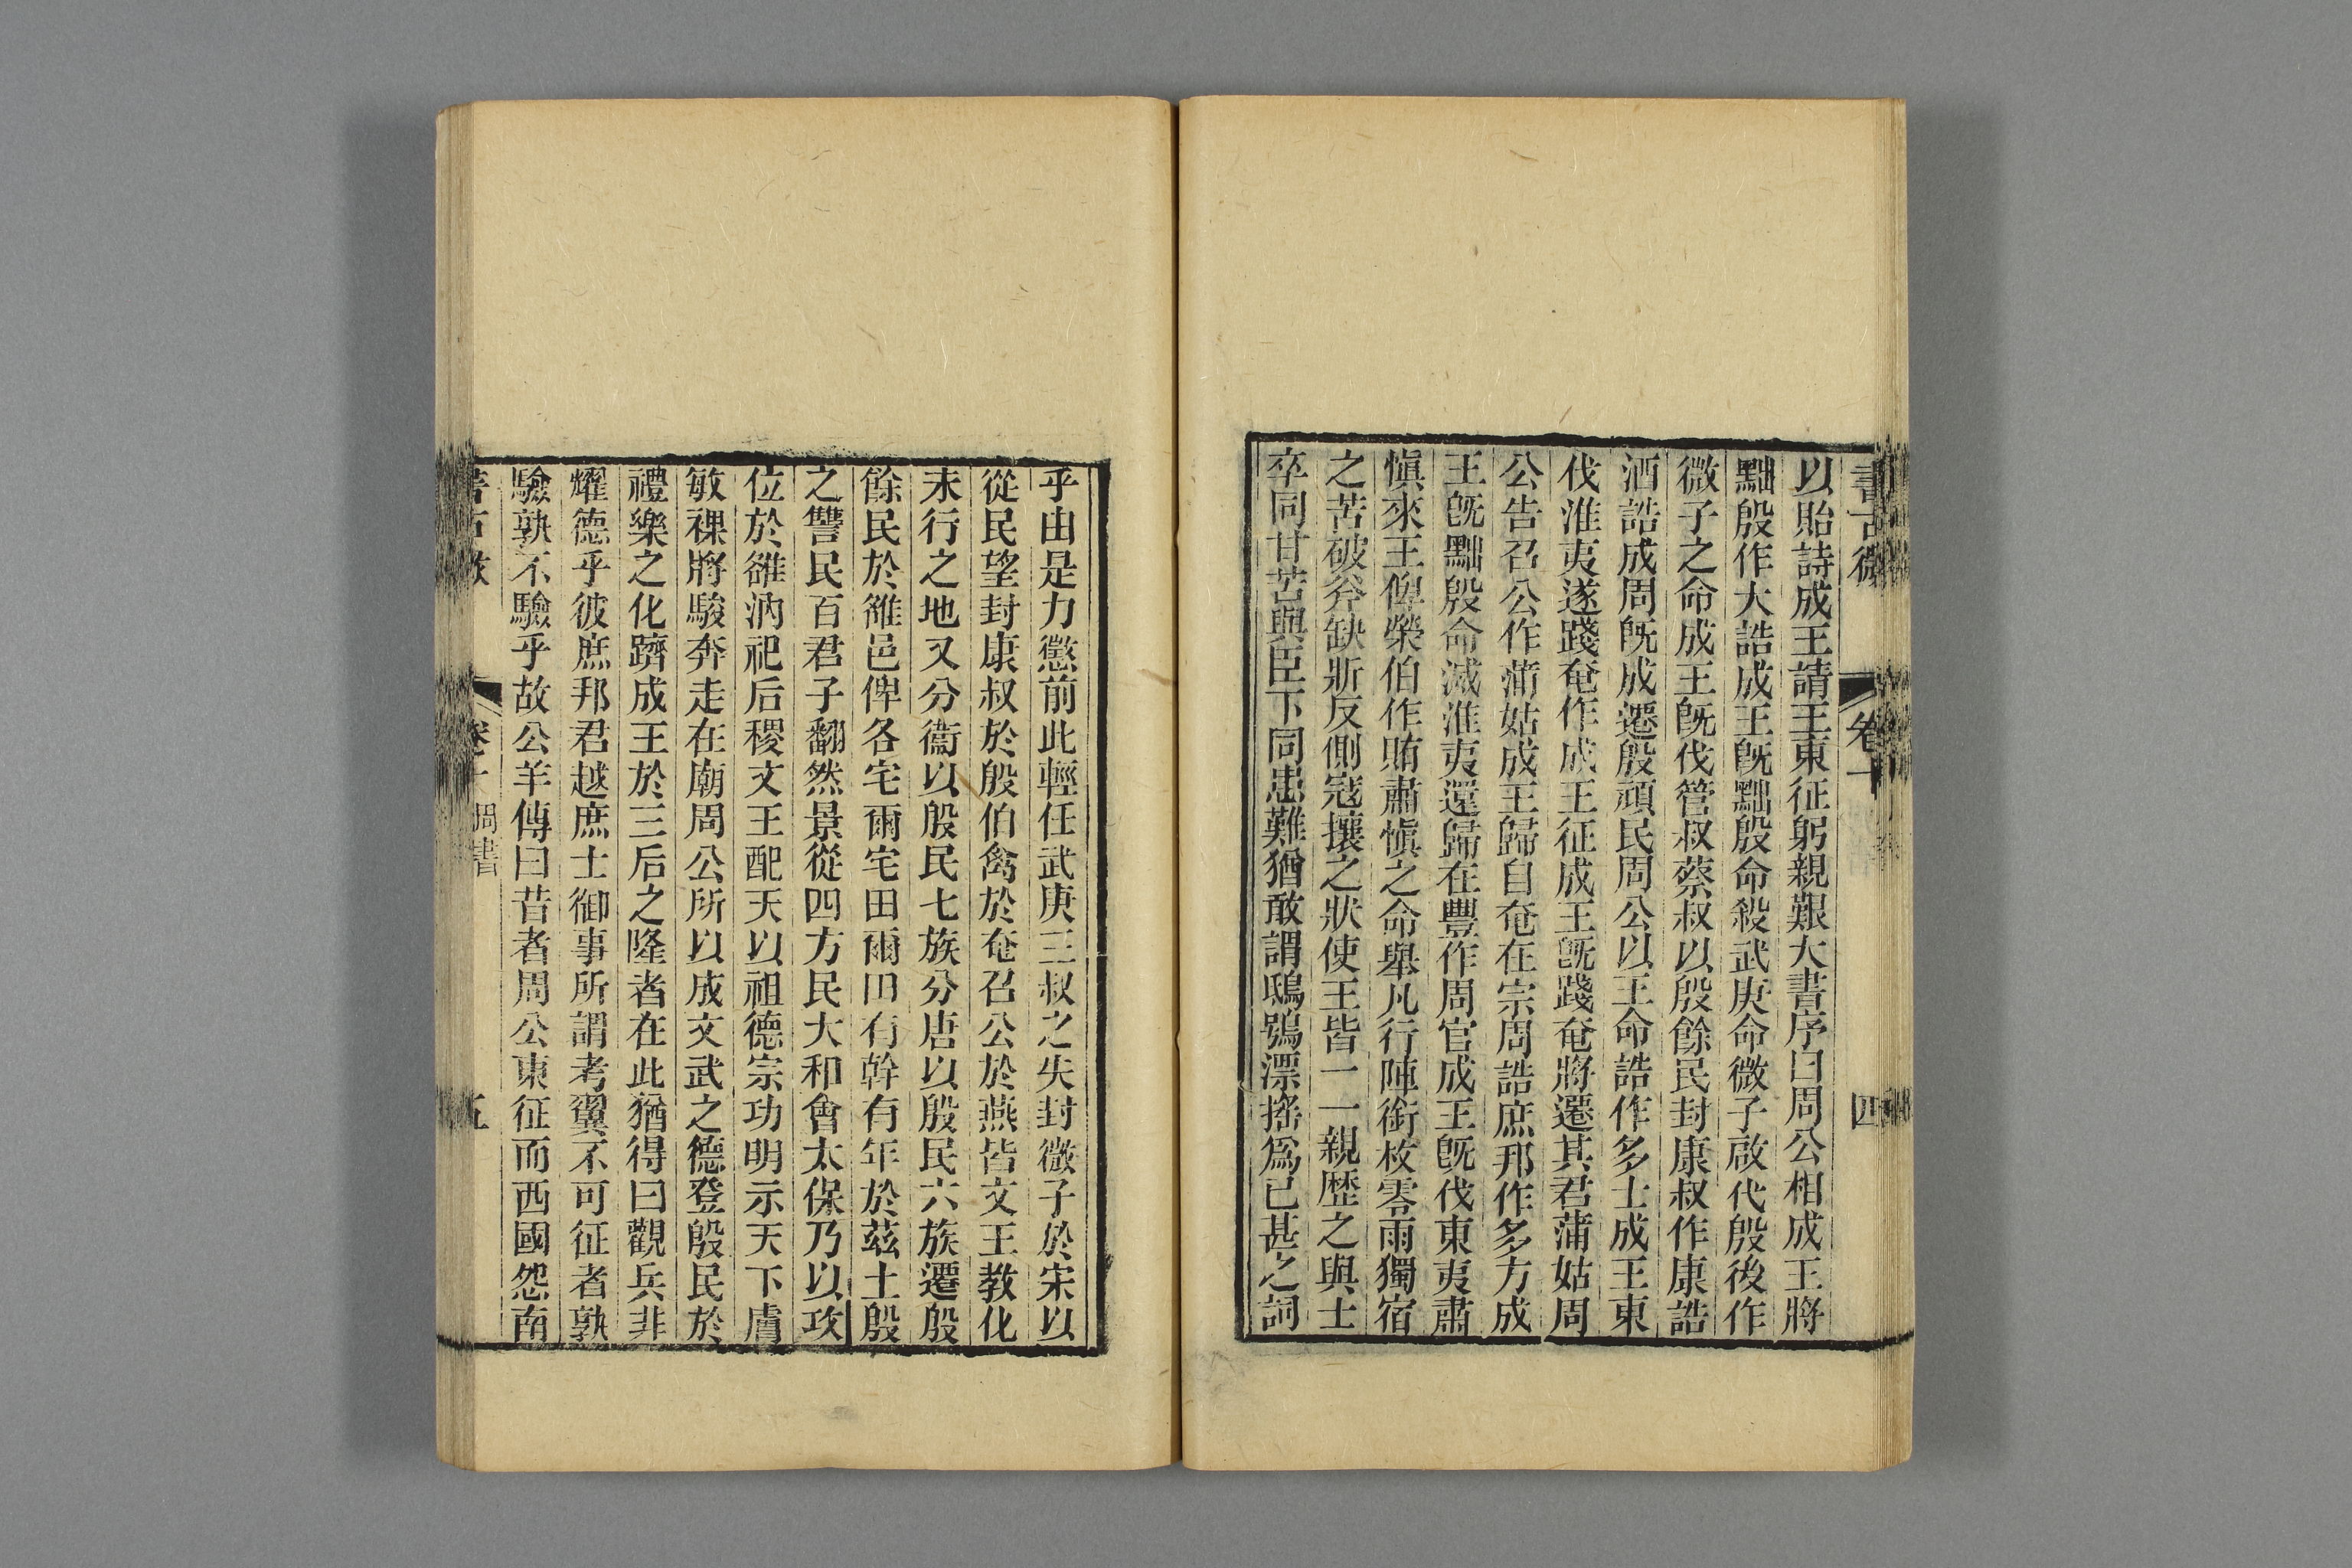 書古微 卷十 四
以貽詩成王請王東征躬親艱大書序曰周公相成王將
黜殷作大誥成王旣黜殷命殺武庚命微子啟代殷後作
微子之命成王旣伐管叔蔡叔以殷餘民封康叔作康誥
酒誥成周旣成遷殷頑民周公以王命誥作多士成王東
伐淮夷遂踐奄作成王征成王旣踐奄將遷其君蒲姑周
公告召公作蒲姑成王歸自奄在宗周誥庶邦作多方成
王旣黜殷命滅淮夷還歸在豐作周官成王旣伐東夷肅
愼來王俾榮伯作賄肅愼之命舉凡行陣銜枚零雨獨宿
之苦破斧缺斨反側寇攘之狀使王皆一一親歷之與士
卒同甘苦與臣下同患難猶敢謂鴟鴞漂搖爲已甚之詞
乎由是力懲前此輕任武庚三叔之失封微子於宋以
從民望封康叔於殷伯禽於奄召公於燕皆文王敎化
未行之地又分衞以殷民七族分唐以殷民六族遷殷
餘民於雒邑俾各宅爾宅田爾田有幹有年於茲土殷
之讐民百君子翻然景從四方民大和會太保乃以攻
位於雒汭祀后稷文王配天以祖德宗功明示天下膚
敏祼將駿奔走在廟周公所以成文武之德登殷民於
禮樂之化躋成王於三后之隆者在此猶得曰觀兵非
耀德乎彼庶邦君越庶士御事所謂考翼不可征者孰
驗孰不驗乎故公羊傳曰昔者周公東征而西國怨南
書古微 卷十 周書 五